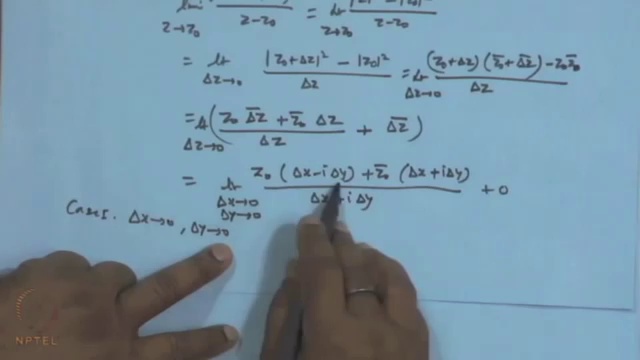 lim z→z₀ z-z₀ = lt z→z₀ z-z₀
= lt Δz→0 |z₀+Δz|² - |z₀|² / Δz = lt Δz→0 (z₀+Δz)(z̄₀+Δz̄) - z₀z̄₀ / Δz
= lt Δz→0 ( z₀ Δz̄ + z̄₀ Δz / Δz + Δz̄ )
= lt Δx→0 Δy→0 z₀ (Δx-iΔy) + z̄₀ (Δx+iΔy) / Δx+iΔy + 0
Case I. Δx→0, Δy→0
NPTEL